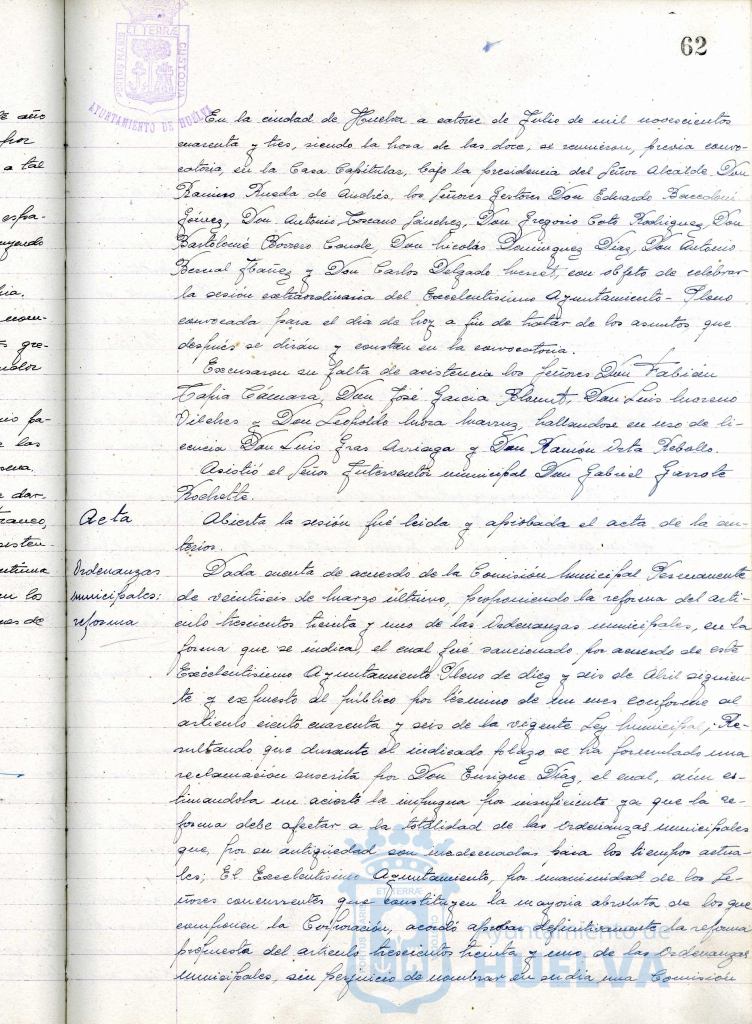 62
PORTUS MARIS ET TERRÆ CUSTODIA
AYUNTAMIENTO DE HUELVA
En la ciudad de Huelva a catorce de Julio de mil novescientos
cuarenta y tres, siendo la hora de las doce, se reunieron, previa convo-
catoria, en la Casa Capitular, bajo la presidencia del Señor Alcalde Don
Ramiro Rueda de Andrés, los Señores Gestores Don Eduardo
Gómez, Don Antonio Toscano Sánchez, Don Gregorio Coto Rodriguez, Don
Bartolomé Borrero Conde, Don Nicolás Dominguez Diaz, Don Antonio
Bernal Ibañez y Don Carlos Delgado con objeto de celebrar
la sesión extraordinaria del Excelentisimo Ayuntamiento-Pleno
convocada para el dia de hoy a fin de tratar de los asuntos que
después se dirán y constan en la convocatoria.
Excusaron su falta de asistencia los Señores Don Fabián
Tapia Cámara, Don José Garcia Don Luis Moreno
Vilches y Don Leopoldo Mora hallandose en uso de li-
cencia Don Luis Gras Arriaga y Don Ramón Orta Rebollo.
Asistió el Señor Interventor municipal Don Gabriel Garrote
Acta
Abierta la sesión fué leida y aprobada el acta de la an-
terior.
Ordenanzas
municipales:
reforma
Dada cuenta de acuerdo de la Comisión Municipal Permanente
de veintiseis de Marzo último, proponiendo la reforma del arti-
culo trescientos treinta y uno de las Ordenanzas municipales, en la
forma que se indica, el cual fué sancionado por acuerdo de este
Excelentisimo Ayuntamiento Pleno de diez y seis de Abril siguien-
te y expuesto al público por término de un mes conforme al
articulo ciento cuarenta y seis de la vigente Ley Municipal; Re-
sultando que durante el indicado plazo se ha formulado una
reclamación suscrita por Don Enrique Diaz, el cual, aún es-
timandola un acierto la impugna por insuficiente ya que la re-
forma debe afectar a la totalidad de las Ordenanzas municipales
que, por su antigüedad son inadecuadas para los tiempos actua-
les; El Excelentisimo Ayuntamiento, por unanimidad de los Se-
ñores concurrentes que constituyen la mayoria absoluta de los que
componen la Corporación, acordó aprobar definitivamente la reforma
propuesta del articulo trescientos treinta y uno de las Ordenanzas
municipales, sin perjuicio de nombrar en su dia una Comisión
Ayuntamiento de
HUELVA